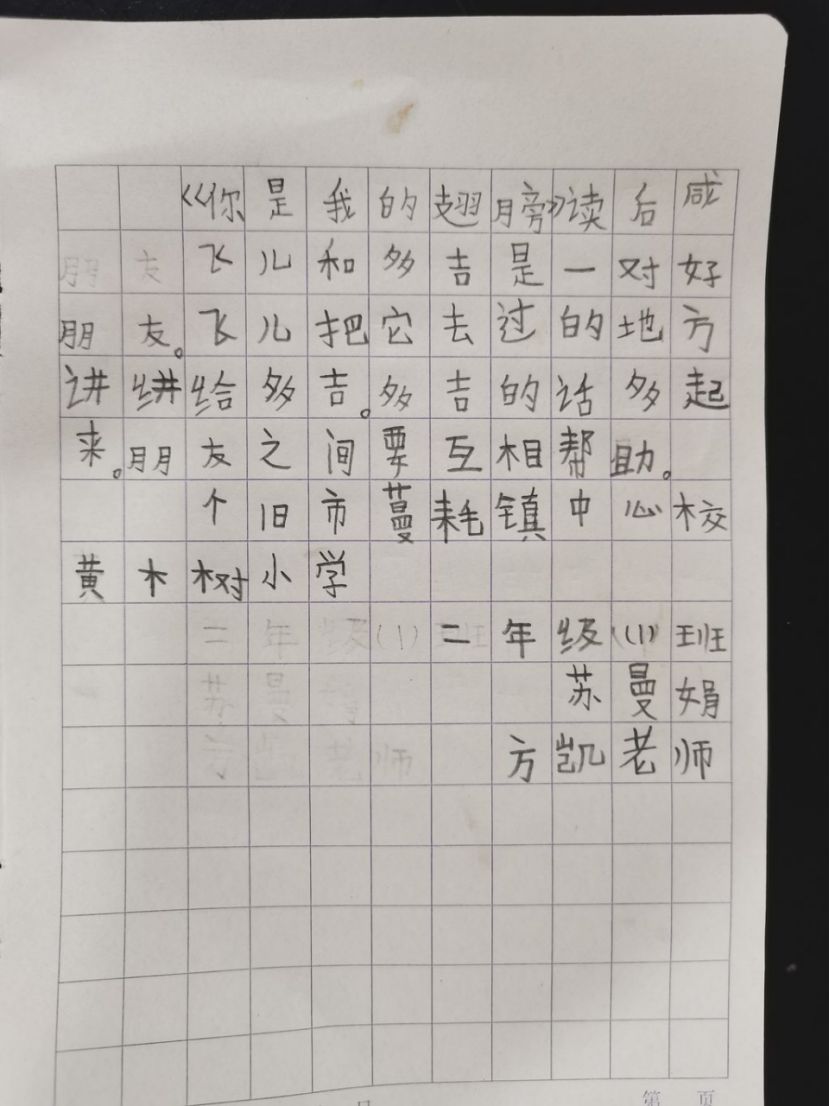 《你是我的翅膀》读后咸
飞儿和多吉是一对好
朋友。飞儿把它去过的地方
讲讲给多吉。多吉的话多起
来。朋友之间要互相帮助。
个旧市蔓耗镇中心校
黄木树小学
二年级(1)班
苏曼娟
方凯老师
第 页